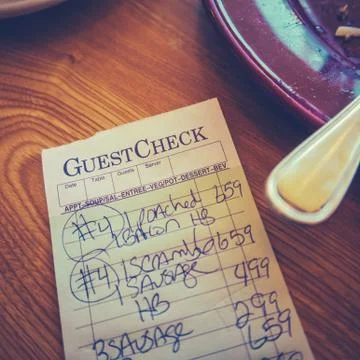 GUESTCHECK
Date Table Guests Server
APPT-SOUP/SAL-ENTREE-VEG/POT-DESSERT-BEV
#4 1 POACHED 659
1 BACON HB
#4 1 SCRAMBLED 659
1 SAUSAGE
HB 499
299
3 SAUSAGE 659